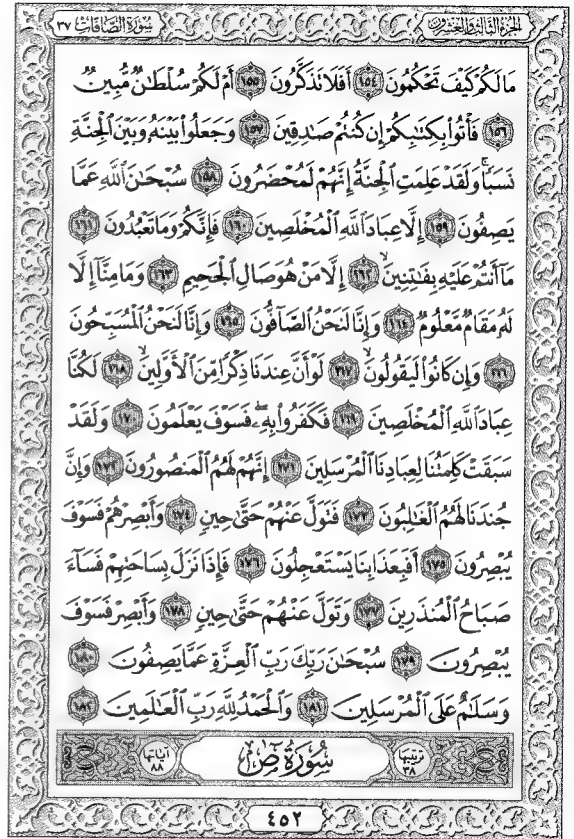 الجزء الثالث والعشرون سورة الصافات ٣٧
مَا لَكُمْ كَيْفَ تَحْكُمُونَ ١٥٤ أَفَلَا تَذَكَّرُونَ ١٥٥ أَمْ لَكُمْ سُلْطَٰنٌ مُّبِينٌ
١٥٦ فَأْتُوا۟ بِكِتَٰبِكُمْ إِن كُنتُمْ صَٰدِقِينَ ١٥٧ وَجَعَلُوا۟ بَيْنَهُۥ وَبَيْنَ ٱلْجِنَّةِ
نَسَبًا ۚ وَلَقَدْ عَلِمَتِ ٱلْجِنَّةُ إِنَّهُمْ لَمُحْضَرُونَ ١٥٨ سُبْحَٰنَ ٱللَّهِ عَمَّا
يَصِفُونَ ١٥٩ إِلَّا عِبَادَ ٱللَّهِ ٱلْمُخْلَصِينَ ١٦٠ فَإِنَّكُمْ وَمَا تَعْبُدُونَ ١٦١
مَآ أَنتُمْ عَلَيْهِ بِفَٰتِنِينَ ١٦٢ إِلَّا مَنْ هُوَ صَالِ ٱلْجَحِيمِ ١٦٣ وَمَا مِنَّآ إِلَّا
لَهُۥ مَقَامٌ مَّعْلُومٌ ١٦٤ وَإِنَّا لَنَحْنُ ٱلصَّآفُّونَ ١٦٥ وَإِنَّا لَنَحْنُ ٱلْمُسَبِّحُونَ
١٦٦ وَإِن كَانُوا۟ لَيَقُولُونَ ١٦٧ لَوْ أَنَّ عِندَنَا ذِكْرًا مِّنَ ٱلْأَوَّلِينَ ١٦٨ لَكُنَّا
عِبَادَ ٱللَّهِ ٱلْمُخْلَصِينَ ١٦٩ فَكَفَرُوا۟ بِهِۦ ۖ فَسَوْفَ يَعْلَمُونَ ١٧٠ وَلَقَدْ
سَبَقَتْ كَلِمَتُنَا لِعِبَادِنَا ٱلْمُرْسَلِينَ ١٧١ إِنَّهُمْ لَهُمُ ٱلْمَنصُورُونَ ١٧٢ وَإِنَّ
جُندَنَا لَهُمُ ٱلْغَٰلِبُونَ ١٧٣ فَتَوَلَّ عَنْهُمْ حَتَّىٰ حِينٍ ١٧٤ وَأَبْصِرْهُمْ فَسَوْفَ
يُبْصِرُونَ ١٧٥ أَفَبِعَذَابِنَا يَسْتَعْجِلُونَ ١٧٦ فَإِذَا نَزَلَ بِسَاحَتِهِمْ فَسَآءَ
صَبَاحُ ٱلْمُنذَرِينَ ١٧٧ وَتَوَلَّ عَنْهُمْ حَتَّىٰ حِينٍ ١٧٨ وَأَبْصِرْ فَسَوْفَ
يُبْصِرُونَ ١٧٩ سُبْحَٰنَ رَبِّكَ رَبِّ ٱلْعِزَّةِ عَمَّا يَصِفُونَ ١٨٠
وَسَلَٰمٌ عَلَى ٱلْمُرْسَلِينَ ١٨١ وَٱلْحَمْدُ لِلَّهِ رَبِّ ٱلْعَٰلَمِينَ ١٨٢
ترتيبها ٣٨ سُورَةُ صٓ آياتها ٨٨
٤٥٢